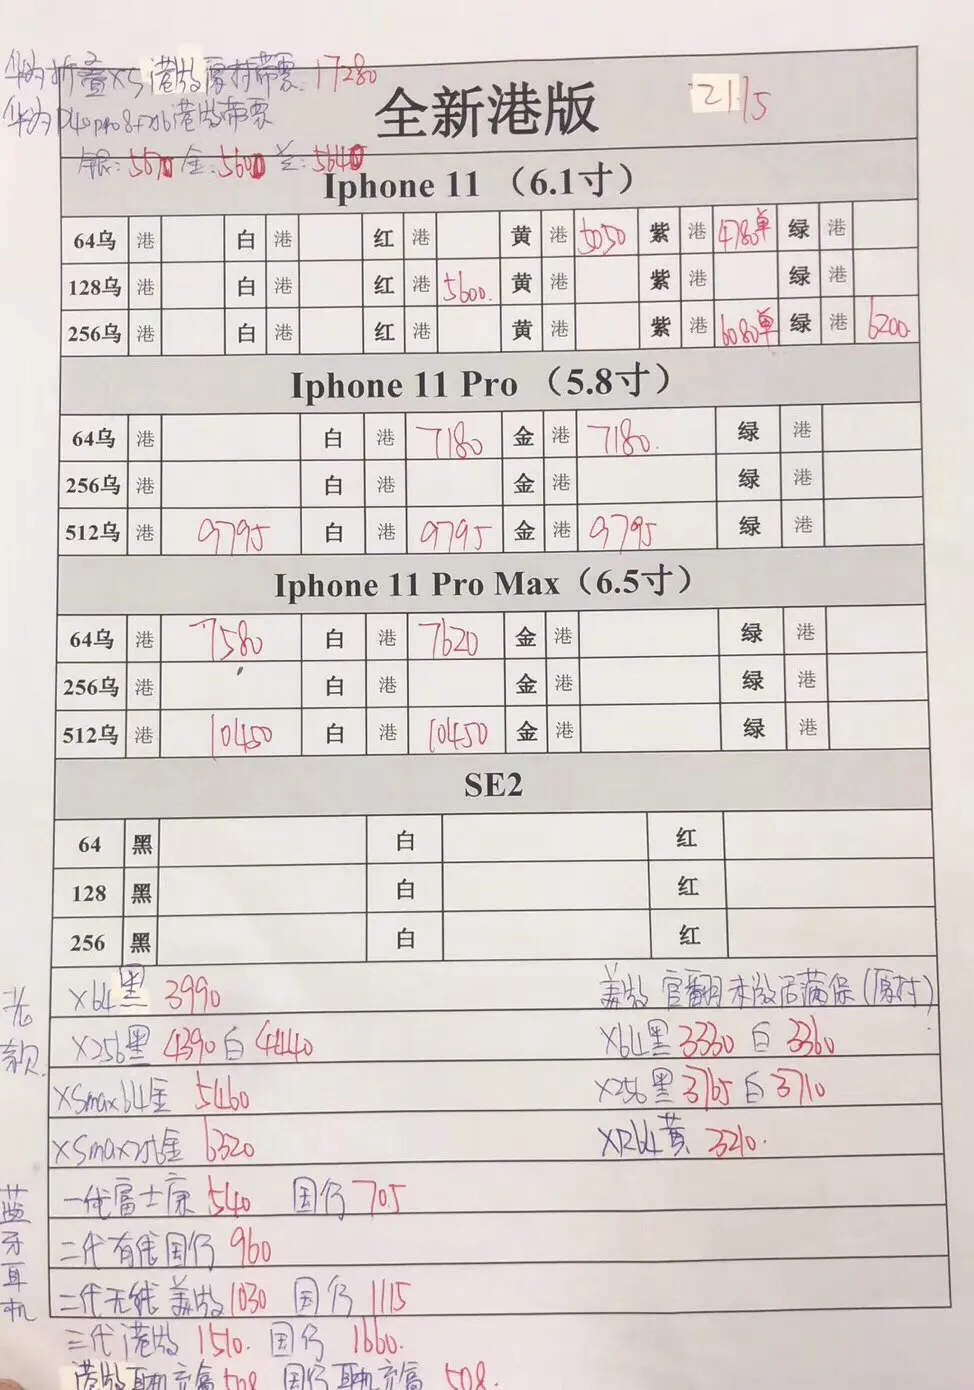 华为折叠XS港版原封带票:17280
全新港版 21/5
华为P40pro8+256港版带票
银:5670 金:5600 兰:5640
Iphone 11 （6.1寸）
64乌 港 白 港 红 港 黄 港 5050 紫 港 4780单 绿 港
128乌 港 白 港 红 港 5600. 黄 港 紫 绿 港
256乌 港 白 港 红 港 黄 港 紫 港 6080单 绿 港 6200
Iphone 11 Pro （5.8寸）
64乌 港 白 港 7180 金 港 7180. 绿 港
256乌 港 白 港 金 港 绿 港
512乌 港 9795 白 港 9795 金 港 9795 绿 港
Iphone 11 Pro Max（6.5寸）
64乌 港 7580 白 港 7620 金 港 绿 港
256乌 港 白 港 金 港 绿 港
512乌 港 10450 白 港 10450 金 港 绿 港
SE2
64 黑 白 红
128 黑 白 红
256 黑 白 红
老款
X64黑 3990 美版 官翻未激活满保(原封)
X256黑 4390 白 4440 X64黑 3330 白 3360
XSmax64金 5460 X256黑 3765 白 3710
XSmax256金 6320 XR64黄 3210.
蓝牙耳机
一代富士康 540 国行 705
二代有线国行 960
二代无线 美版 1030 国行 1115
三代港版 1510. 国行 1660.
港版耳机充富 508 国行耳机充富 508.